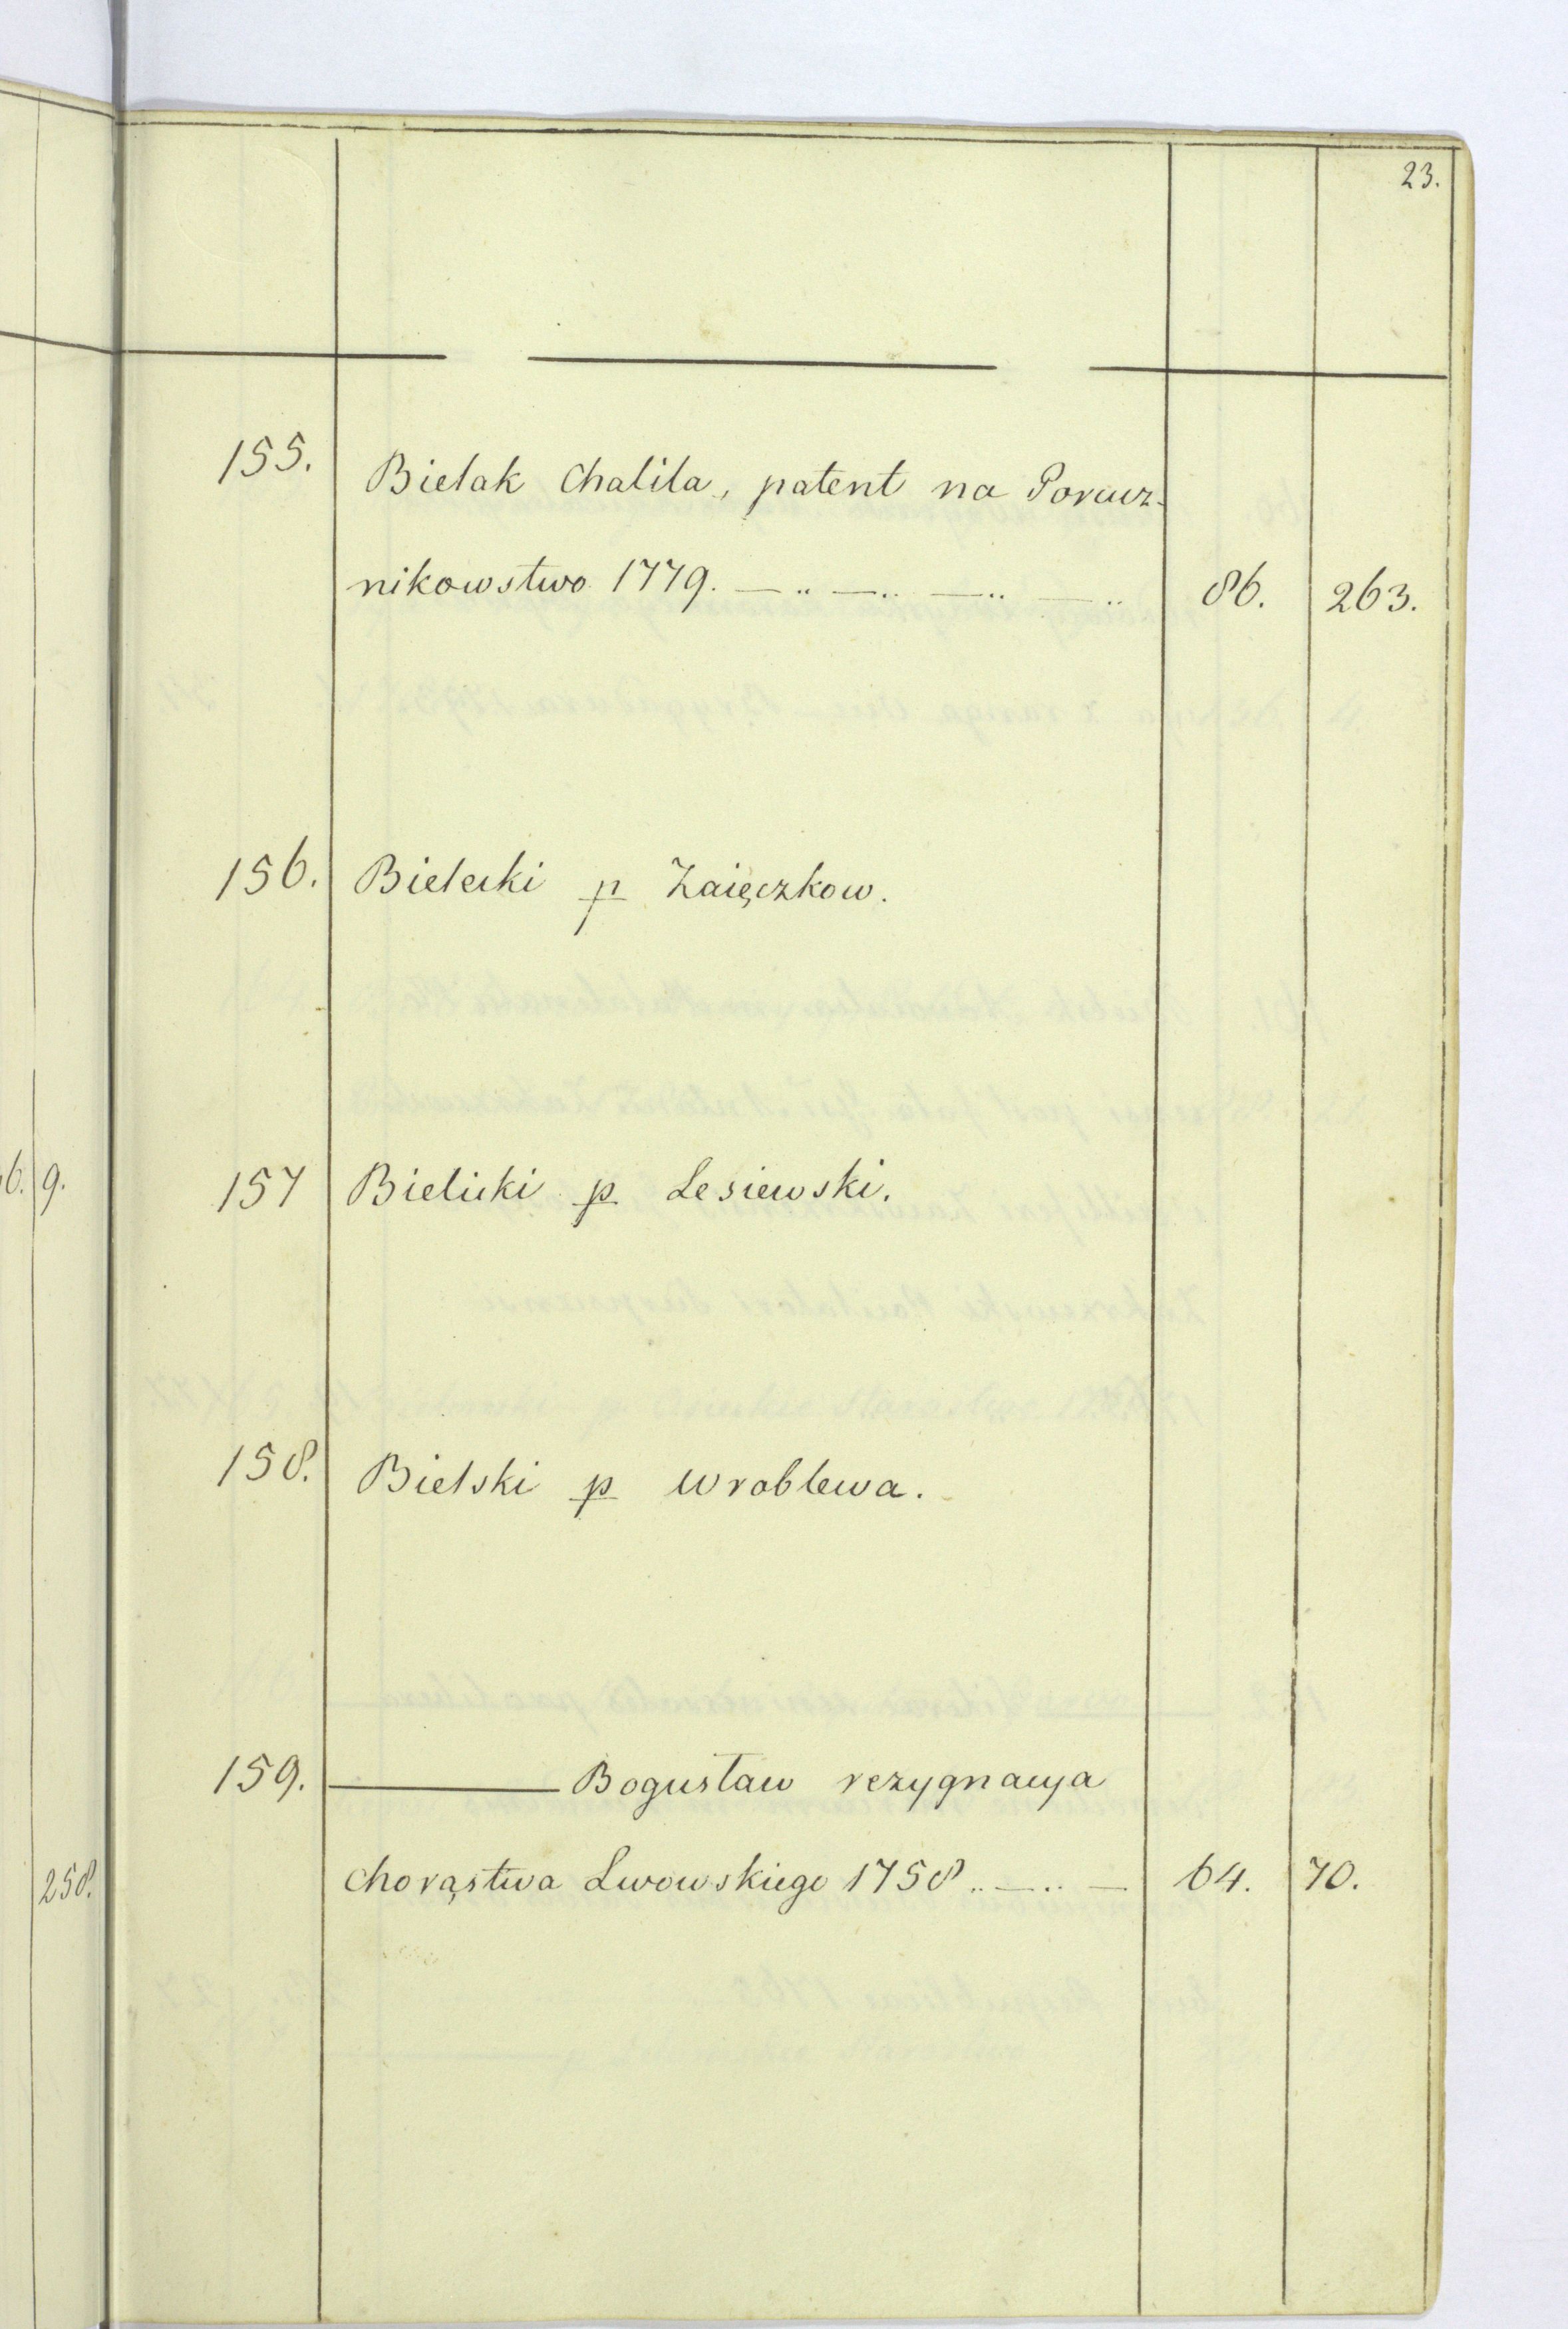 23.
155. Bielak Chalila, patent na Porucz-
nikowstwo 1779. — .. — .. — .. — .. 86. 263.
156. Bielecki p Zaięczkow.
6. 9.
157 Bielicki p Lesiewski.
158. Bielski p Wroblewa.
159. ——— Bogusław rezygnacya
258.
Chorąstwa Lwowskiego 1758 .. — .. — 64. 70.